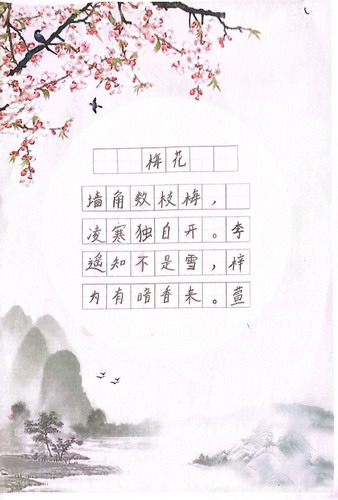 梅花
墙角数枝梅，
凌寒独自开。李
遥知不是雪，梓
为有暗香来。萱